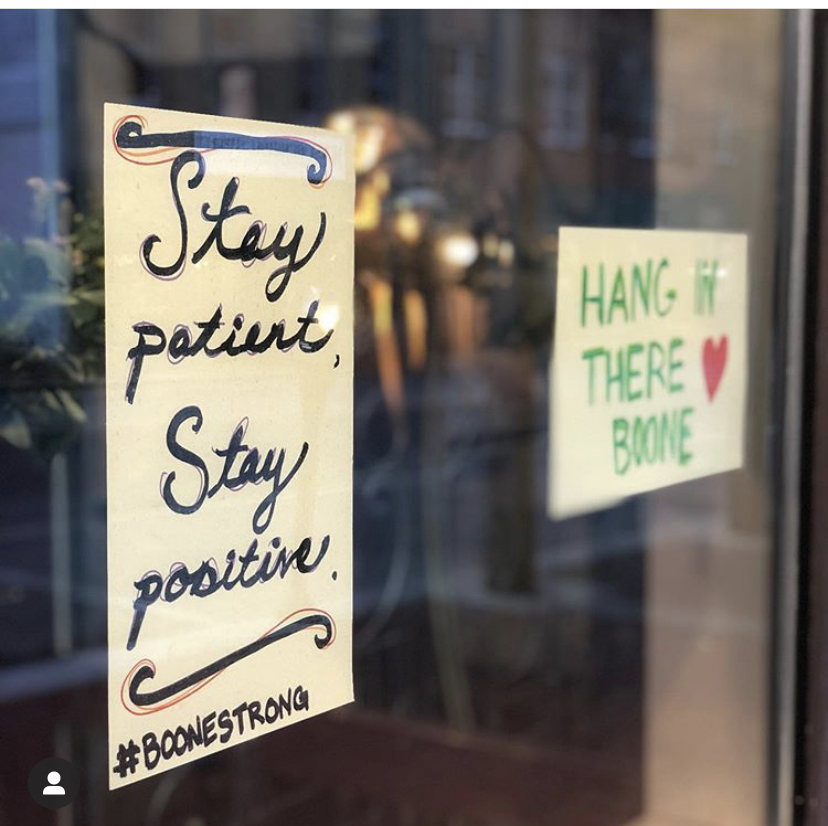 Stay
patient,
Stay
positive.
#BOONESTRONG
HANG IN
THERE ♥
BOONE